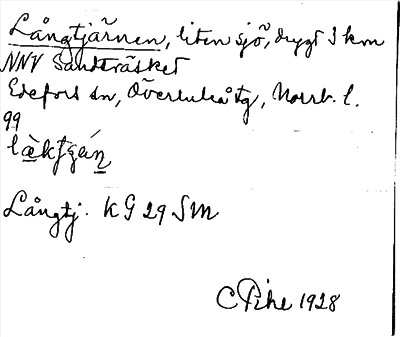 Långtjärnen, liten sjö, drygt 3 km
NNV Sandträsket
Edefors sn, Överluleå tg, Norrb. l.
99
Långtj. KG 29 SM
C Pihe 1928